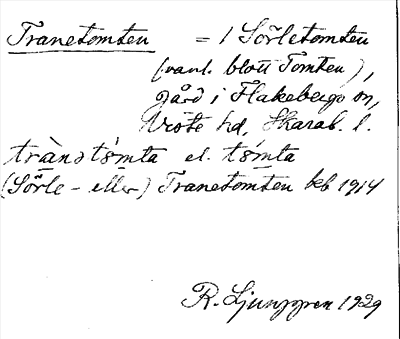 Tranetomten = 1 Sörletomten
(vanl. blott Tomten),
gård i Flakebergs sn,
Viste hd, Skarab. l.
trànətómta el. tómta
(Sörle- eller) Tranetomten beb 1914
R. Ljunggren 1929